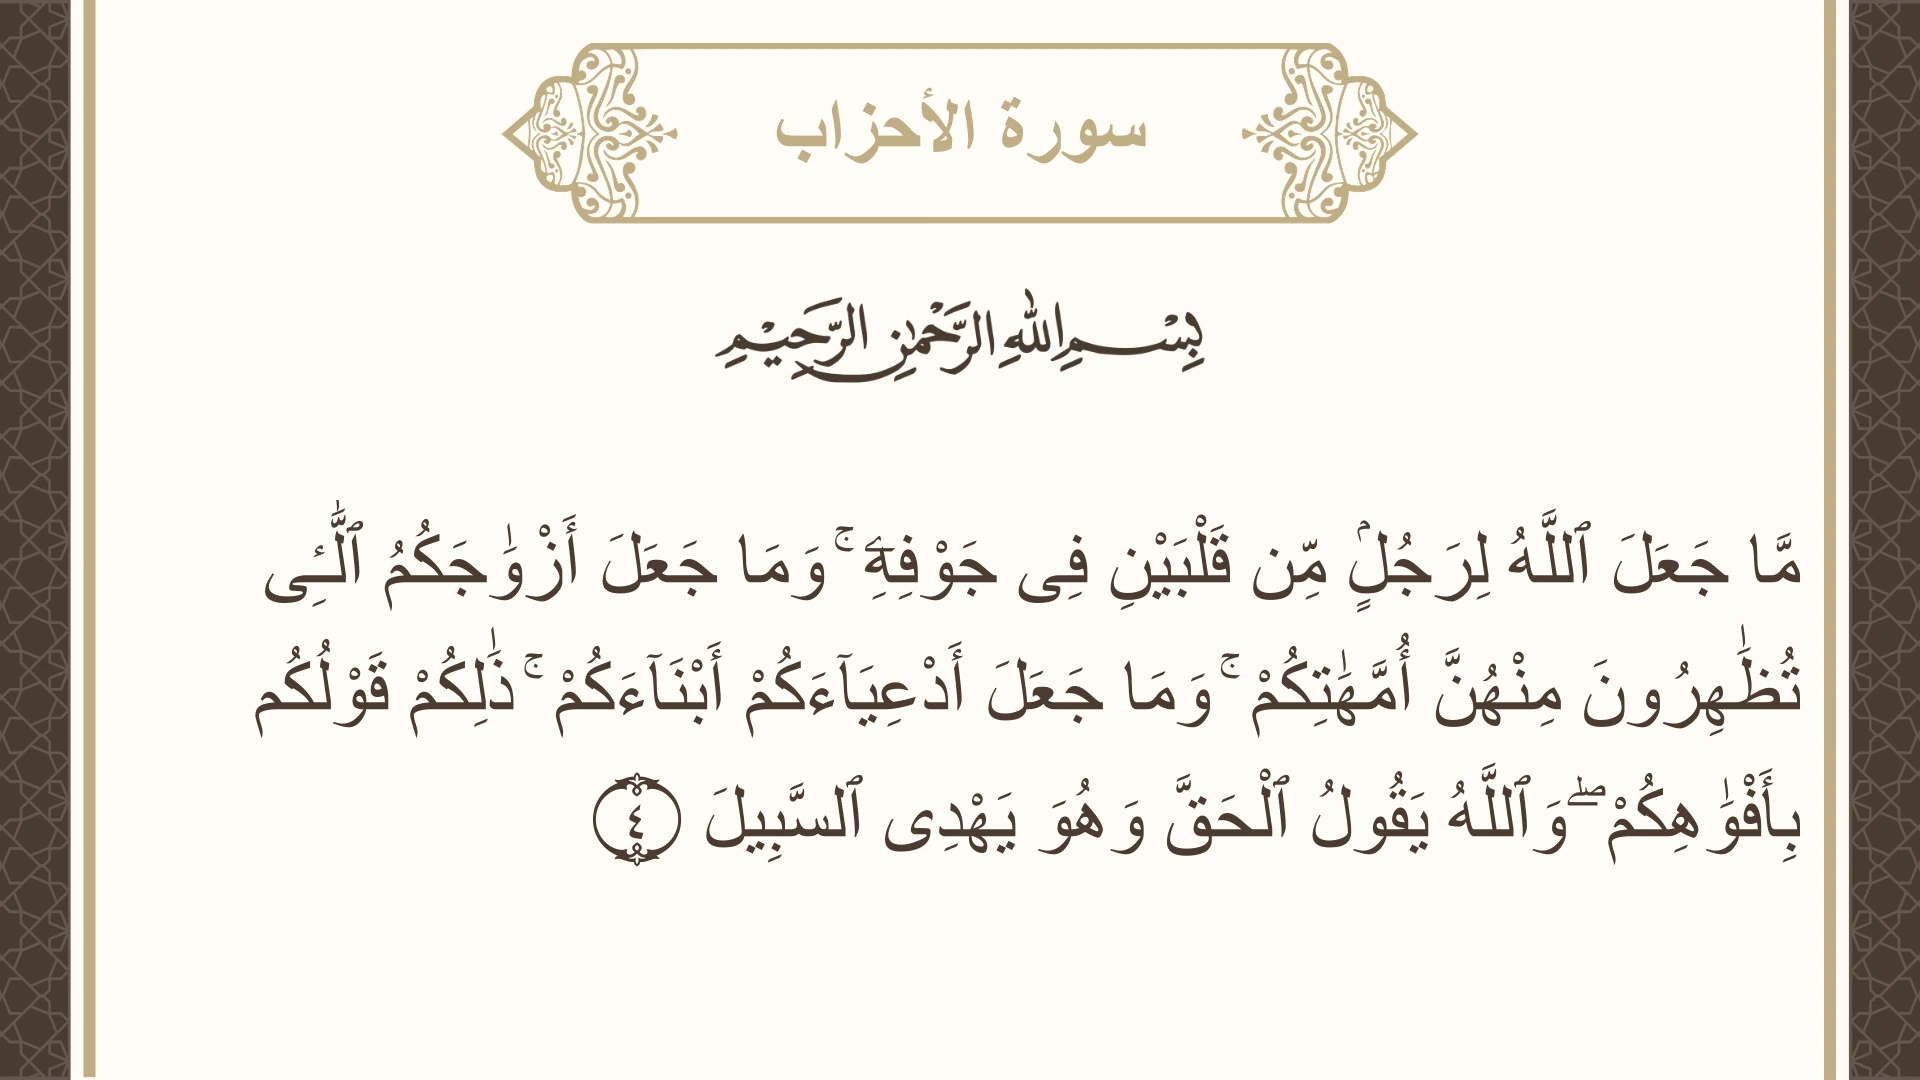 سورة الأحزاب
بِسْمِ اللهِ الرَّحْمٰنِ الرَّحِيْمِ
مَّا جَعَلَ ٱللَّهُ لِرَجُلٍۢ مِّن قَلْبَيْنِ فِى جَوْفِهِۦ ۚ وَمَا جَعَلَ أَزْوَٰجَكُمُ ٱلَّـٰٓـِٔى
تُظَـٰهِرُونَ مِنْهُنَّ أُمَّهَـٰتِكُمْ ۚ وَمَا جَعَلَ أَدْعِيَآءَكُمْ أَبْنَآءَكُمْ ۚ ذَٰلِكُمْ قَوْلُكُم
بِأَفْوَٰهِكُمْ ۖ وَٱللَّهُ يَقُولُ ٱلْحَقَّ وَهُوَ يَهْدِى ٱلسَّبِيلَ ٤